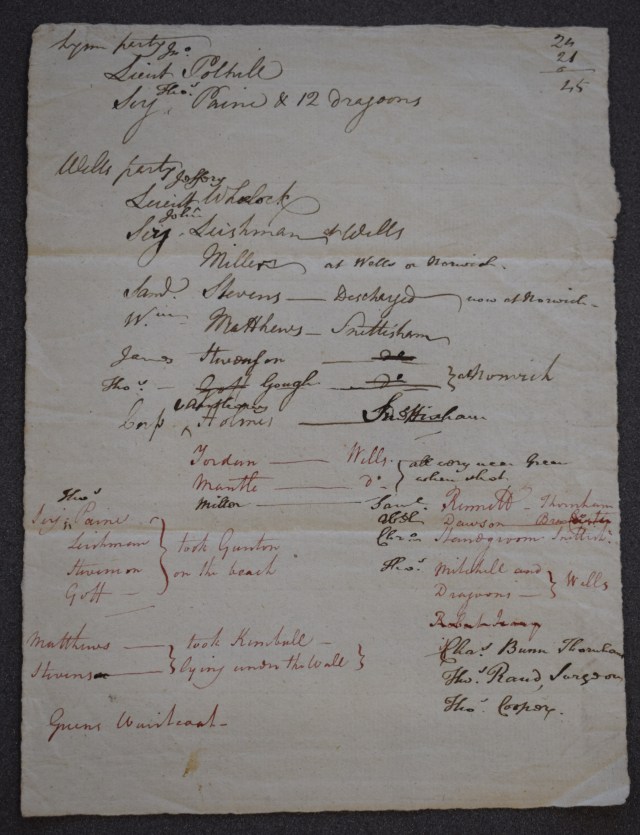 Lynn party Jno.
24
21
45
Lieut Polhill
Serj Thos. Paine & 12 Dragoons
Wells party
Jeffery
Lieut Wholock
John
Serj. Leishman at Wells
Millers at Wells or Norwich.
Saml. Stevens — Discharged now at Norwich.
Wm. Matthews — Snettisham
James Stevenson — do
Thos. — Goff Gough — do } at Norwich
Corp Holmes — Snettisham
Jordan — Wells.
Mantle — Do. } all very near Green when shot.
Milton
Thos.
Serj. Paine
Leishman
Stevenson
Goff — } took Gunton on the beach
Saml. Rennett — Thornham
Dawson
Snettishm.
Thos. Mitchell and Dragoons — } Wells
Matthews —
Stevens } took Kemball — lying under the Wall }
Chas. Bunn Thornham
Thos. Rand, Surgeon
Thos. Cooper.
Greens Waistcoat —